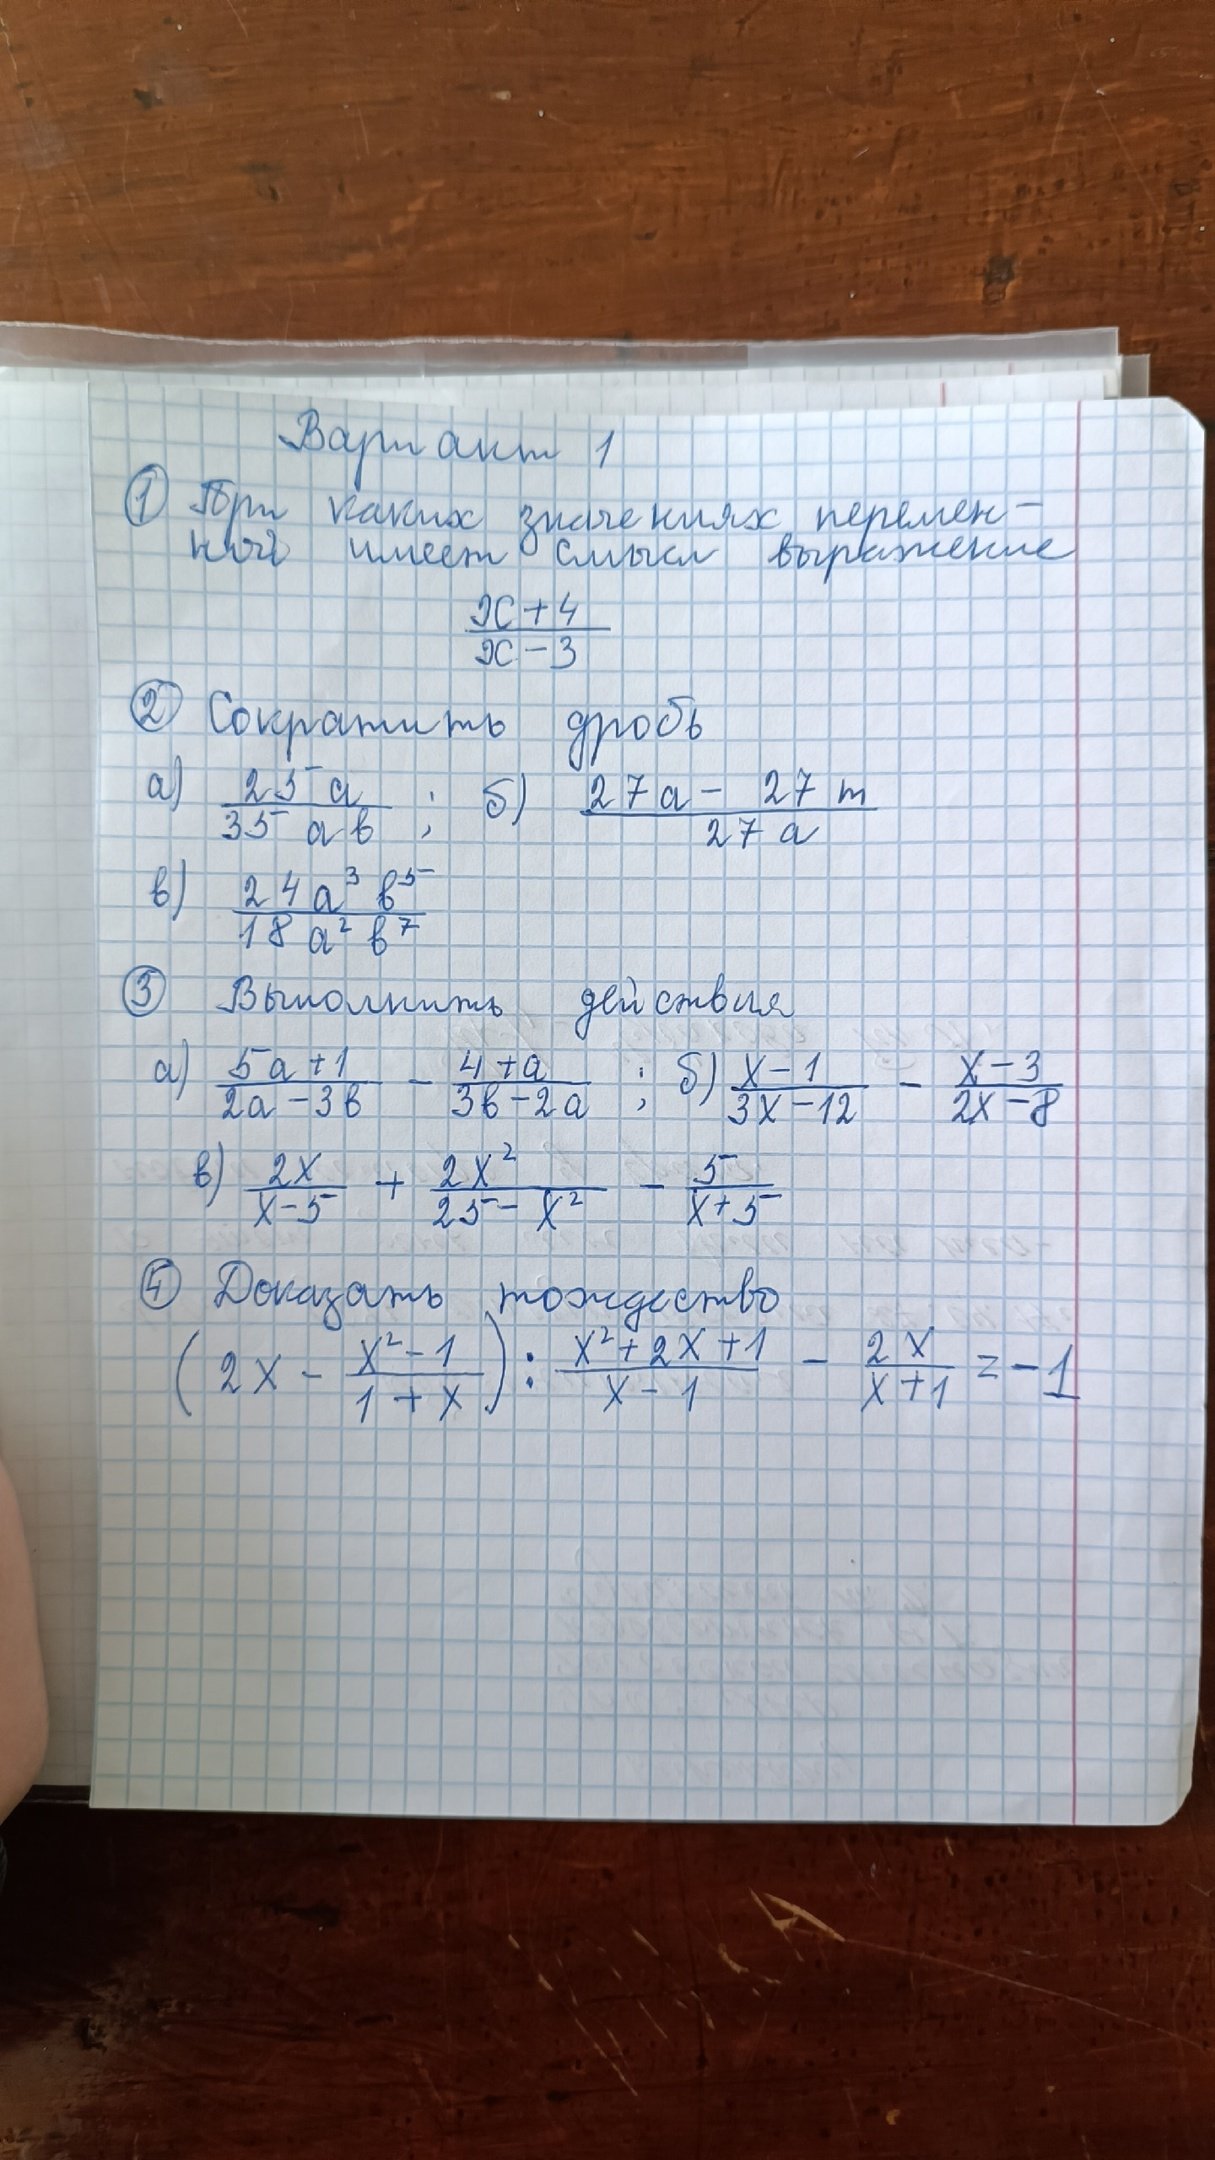 Вариант 1
① При каких значениях перемен-
ной имеет смысл выражение
x+4
x-3
② Сократить дробь
а) 25a / 35ab ; б) 27a - 27m / 27a
в) 24a³b⁵ / 18a²b⁷
③ Выполнить действия
а) 5a+1 / 2a-3b - 4+a / 3b-2a ; б) x-1 / 3x-12 - x-3 / 2x-8
в) 2x / x-5 + 2x² / 25-x² - 5 / x+5
④ Доказать тождество
(2x - x²-1 / 1+x) : x²+2x+1 / x-1 - 2x / x+1 = -1